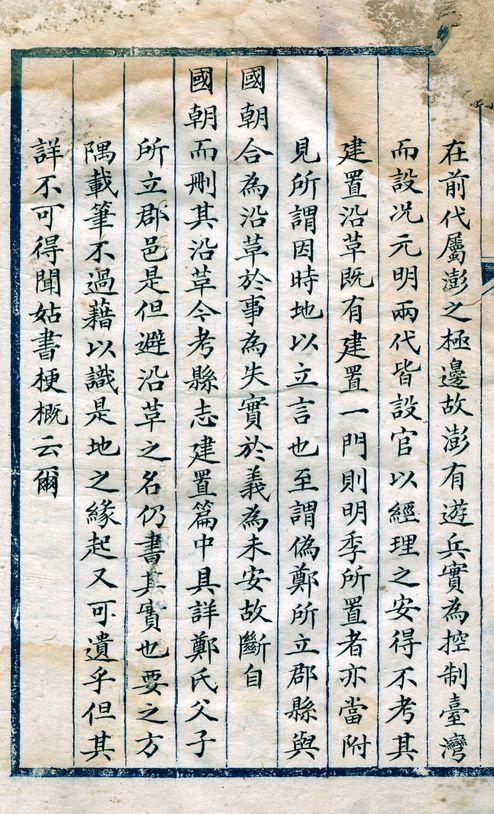 在前代屬澎之極邊故澎有遊兵實為控制臺灣
而設况元明兩代皆設官以經理之安得不考其
建置沿革既有建置一門則明季所置者亦當附
見所謂因時地以立言也至謂偽鄭所立郡縣與
國朝合為沿革於事為失實於義為未安故斷自
國朝而刪其沿革今考縣志建置篇中具詳鄭氏父子
所立郡邑是但避沿革之名仍書其實也要之方
隅載筆不過藉以識是地之緣起又可遺乎但其
詳不可得聞姑書梗概云爾